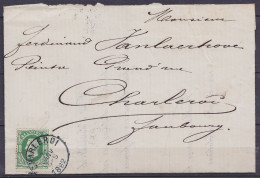 Monsieur
Ferdinand Vanlaerhove
Peintre Grand'rue
Charleroi
faubourg